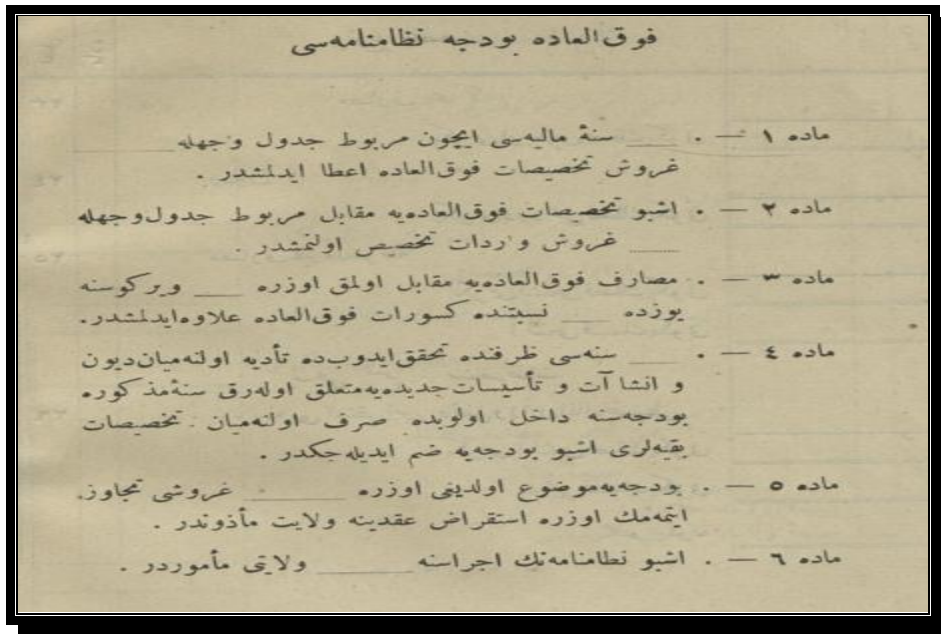 فوق‌العاده بودجه نظامنامه‌سی
ماده ١ — . ____ سنهٔ مالیه‌سی ایچون مربوط جدول وجهله ______
غروش تخصیصات فوق‌العاده اعطا ایدلمشدر .
ماده ٢ — . اشبو تخصیصات فوق‌العاده‌یه مقابل مربوط جدول‌وجهله
____ غروش واردات تخصیص اولنمشدر .
ماده ٣ — . مصارف فوق‌العاده‌یه مقابل اولمق اوزره ____ ویرکوسنه
یوزده ____ نسبتنده کسورات فوق‌العاده علاوه‌ایدلمشدر.
ماده ٤ — . ____ سنه‌سی ظرفنده تحقق‌ایدوب‌ده تأدیه اولنه‌میان‌دیون
و انشاآت و تأسیسات جدیده‌یه‌متعلق اوله‌رق سنهٔ‌مذکوره
بودجه‌سنه داخل اولوبده صرف اولنه‌میان تخصیصات
بقیه‌لری اشبو بودجه‌یه ضم ایدیله‌جکدر .
ماده ٥ — . بودجه‌یه‌موضوع اولدیغی اوزره ______ غروشی تجاوز
ایتمه‌مك اوزره استقراض عقدینه ولایت مأذوندر .
ماده ٦ — . اشبو نظامنامه‌نك اجراسنه ______ ولایتی مأموردر .